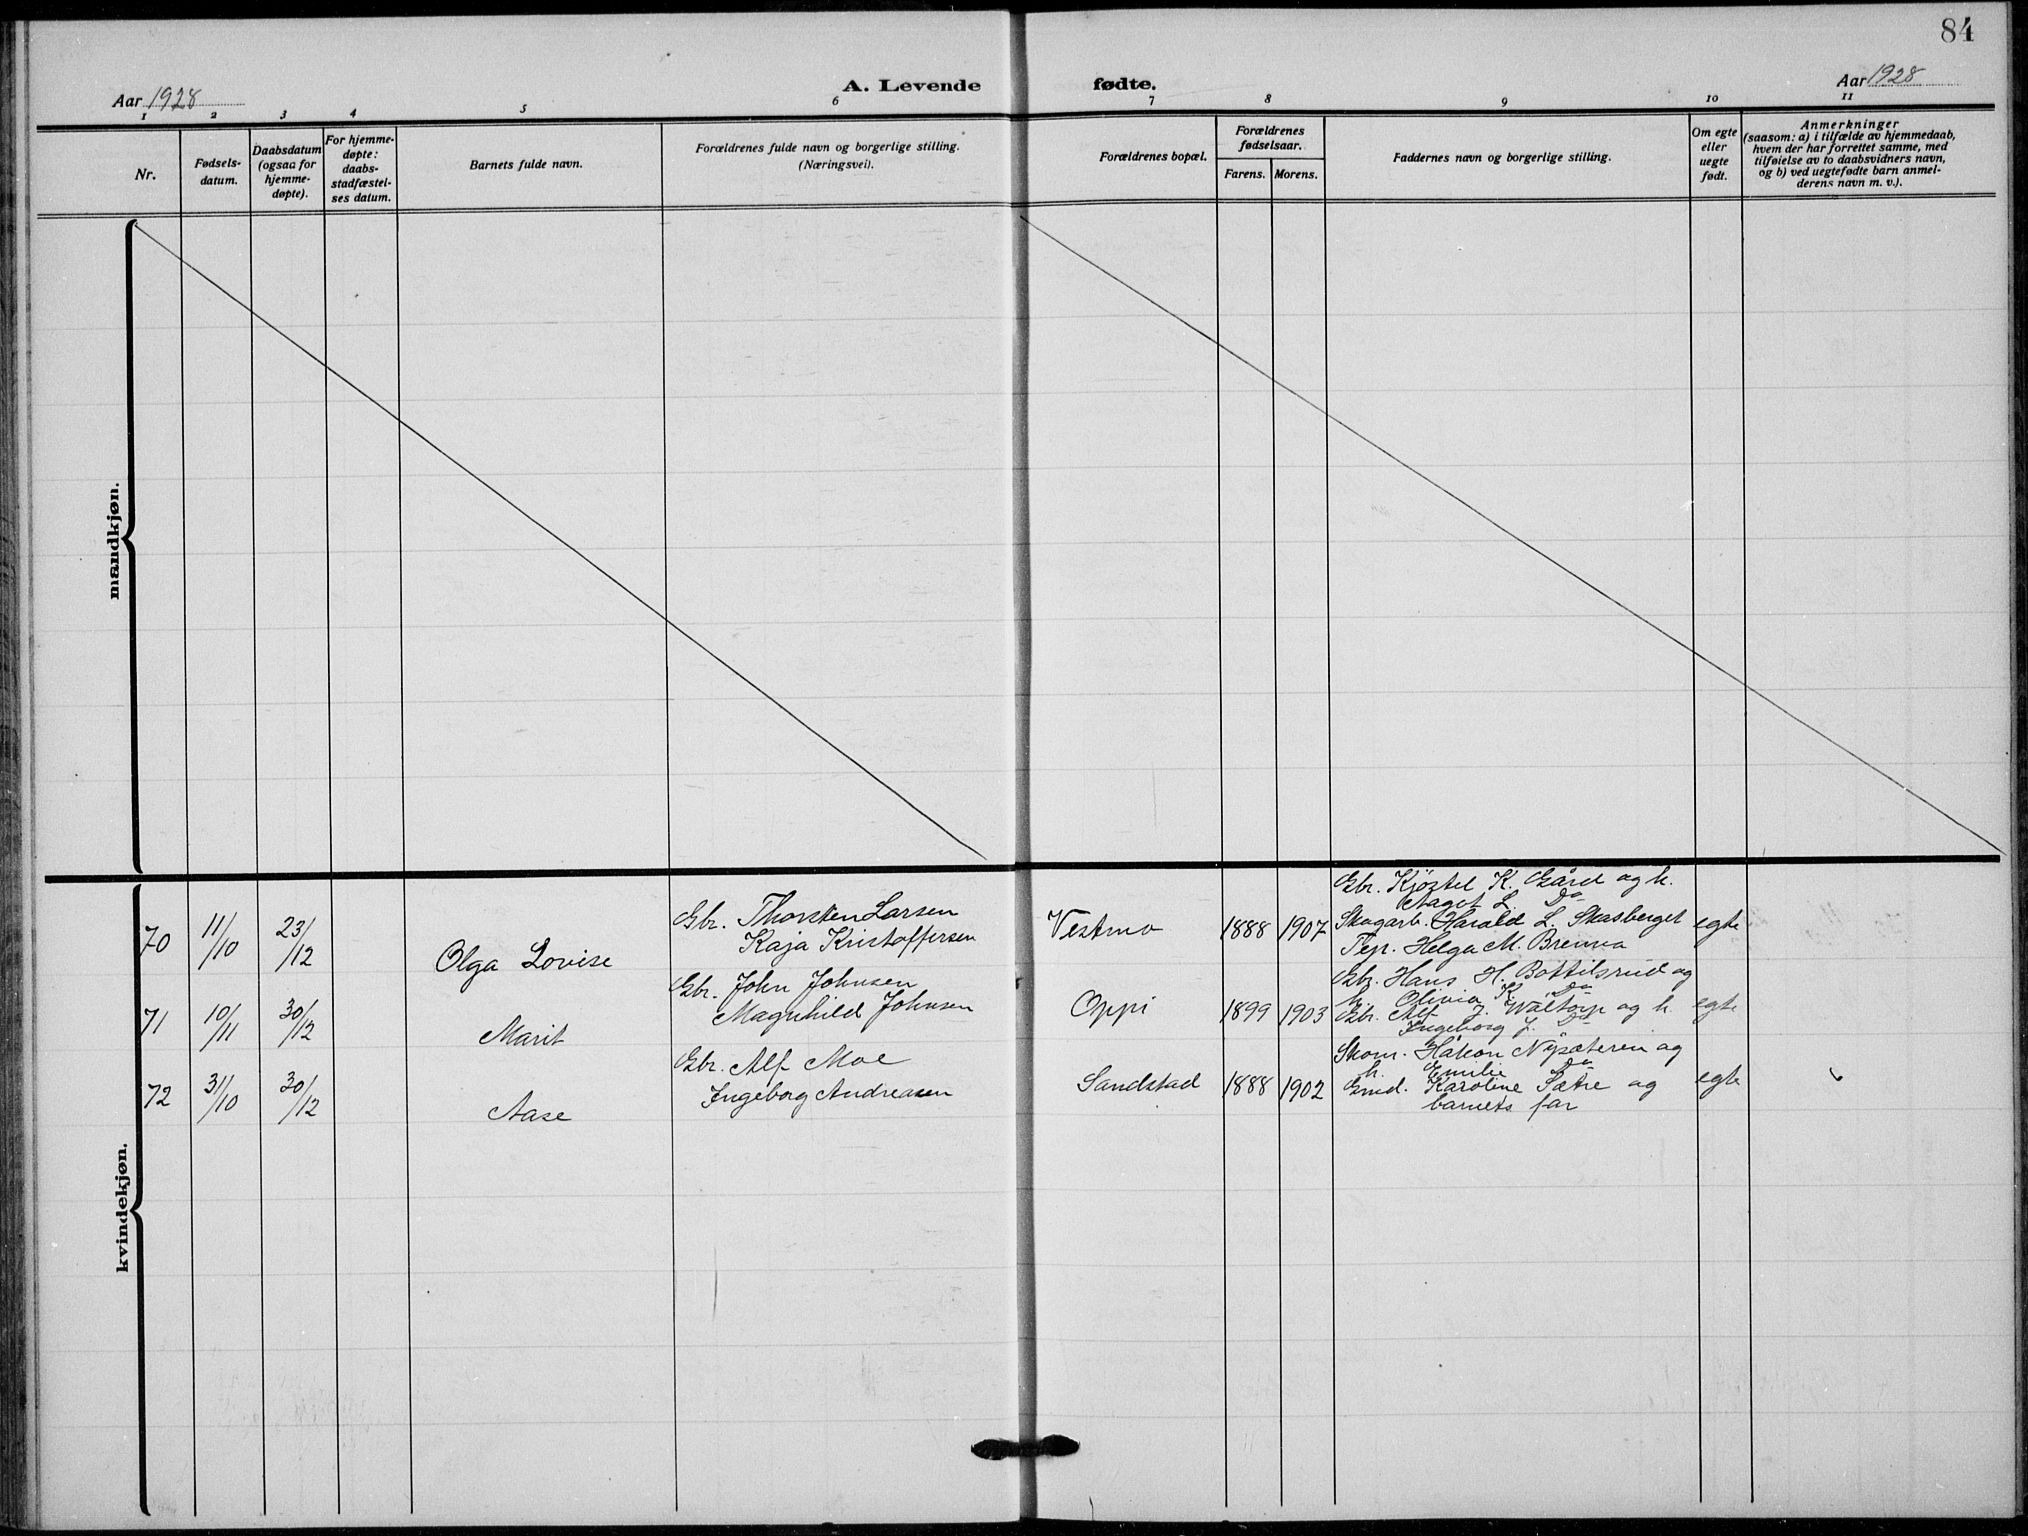 84
Aar 1928
A. Levende fødte.
Aar 1928
1 2 3 4 5 6 7 8 9 10 11
Nr.
Fødsels-
datum.
Daabsdatum
(ogsaa for
hjemme-
døpte).
For hjemme-
døpte:
daabs-
stadfæstel-
ses datum.
Barnets fulde navn.
Forældrenes fulde navn og borgerlige stilling.
(Næringsvei).
Forældrenes bopæl.
Forældrenes
fødselsaar.
Farens. Morens.
Faddernes navn og borgerlige stilling.
Om egte
eller
uegte
født.
Anmerkninger
(saasom: a) i tilfælde av hjemmedaab,
hvem der har forrettet samme, med
tilføielse av to daabsvidners navn,
og b) ved uegtefødte barn anmel-
derens navn m. v.).
mandkjøn.
kvindekjøn.
70 11/10 23/12 Olga Lovise
Gbr. Thorsten Larsen
Kaja Kristoffersen
Vestmo 1888 1907
Gbr. Kjøstel K. Gård og h.
Aagot L. Do
Skogarb. Harald L. Skasberget
Tep. Helga M. Brenna
egte
71 10/11 30/12 Marit
Gbr. John Johnsen
Magnhild Johnsen
Oppi 1899 1903
Gbr. Hans H. Bottilsrud og
h. Olivia K. Do
Gbr. Alf J. Waltorp og h.
Ingeborg J. Do
egte
72 31/10 30/12 Aase
Gbr. Alf Moe
Ingeborg Andreasen
Sandstad 1888 1902
Skom. Håkon Nysæteren og
h. Emilie Do
Gmd. Karoline Sætre og
barnets far
egte